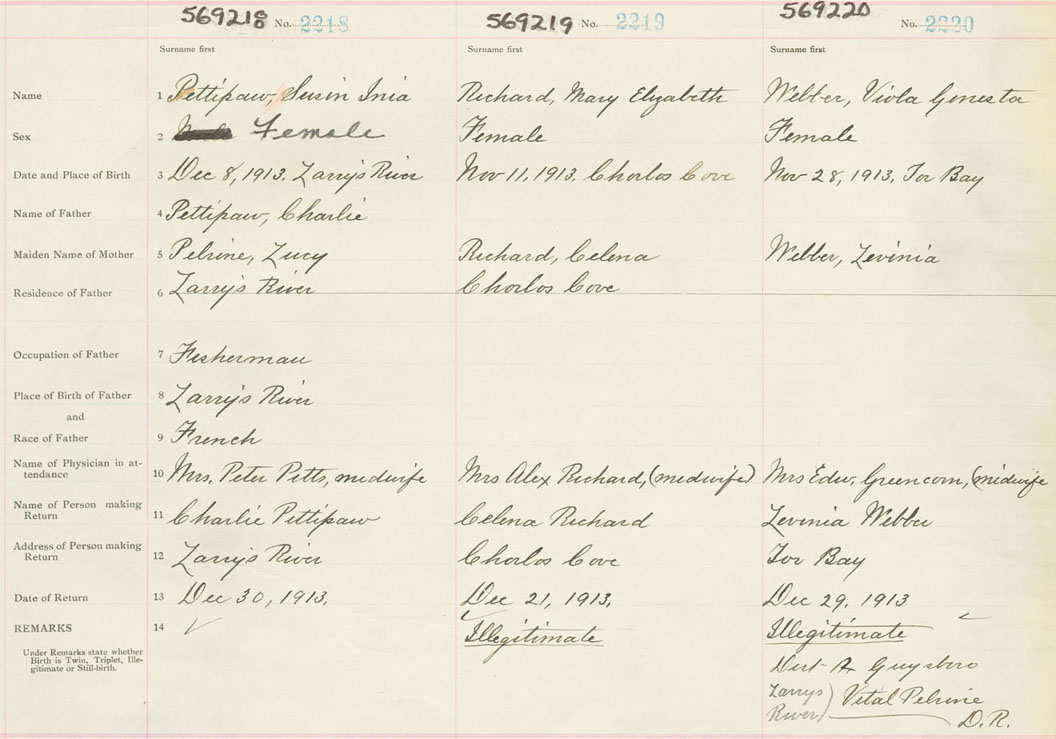 569218 No. 2218 569219 No. 2219 569220 No. 2220
Surname first Surname first Surname first
Name 1 Pettipaw, Susin Inia Richard, Mary Elizabeth Webber, Viola Genesta
Sex 2 Female Female Female
Date and Place of Birth 3 Dec 8, 1913. Larry's River Nov 11, 1913. Chorlos Cove Nov 28, 1913. Tor Bay
Name of Father 4 Pettipaw, Charlie
Maiden Name of Mother 5 Pelrine, Lucy Richard, Celena Webber, Levinia
Residence of Father 6 Larry's River Chorlos Cove
Occupation of Father 7 Fisherman
Place of Birth of Father 8 Larry's River
and
Race of Father 9 French
Name of Physician in at-
tendance 10 Mrs. Peter Pitts, midwife Mrs Alex Richard, (midwife) Mrs Edw. Greencorn, (midwife
Name of Person making
Return 11 Charlie Pettipaw Celena Richard Levinia Webber
Address of Person making
Return 12 Larry's River Chorlos Cove Tor Bay
Date of Return 13 Dec 30, 1913. Dec 21, 1913. Dec 29. 1913
REMARKS 14 Illegitimate Illegitimate
Under Remarks state whether
Birth is Twin, Triplet, Ille-
gitimate or Still-birth.
Guysboro
Larrys
River) Vital Pelrine
D.R.